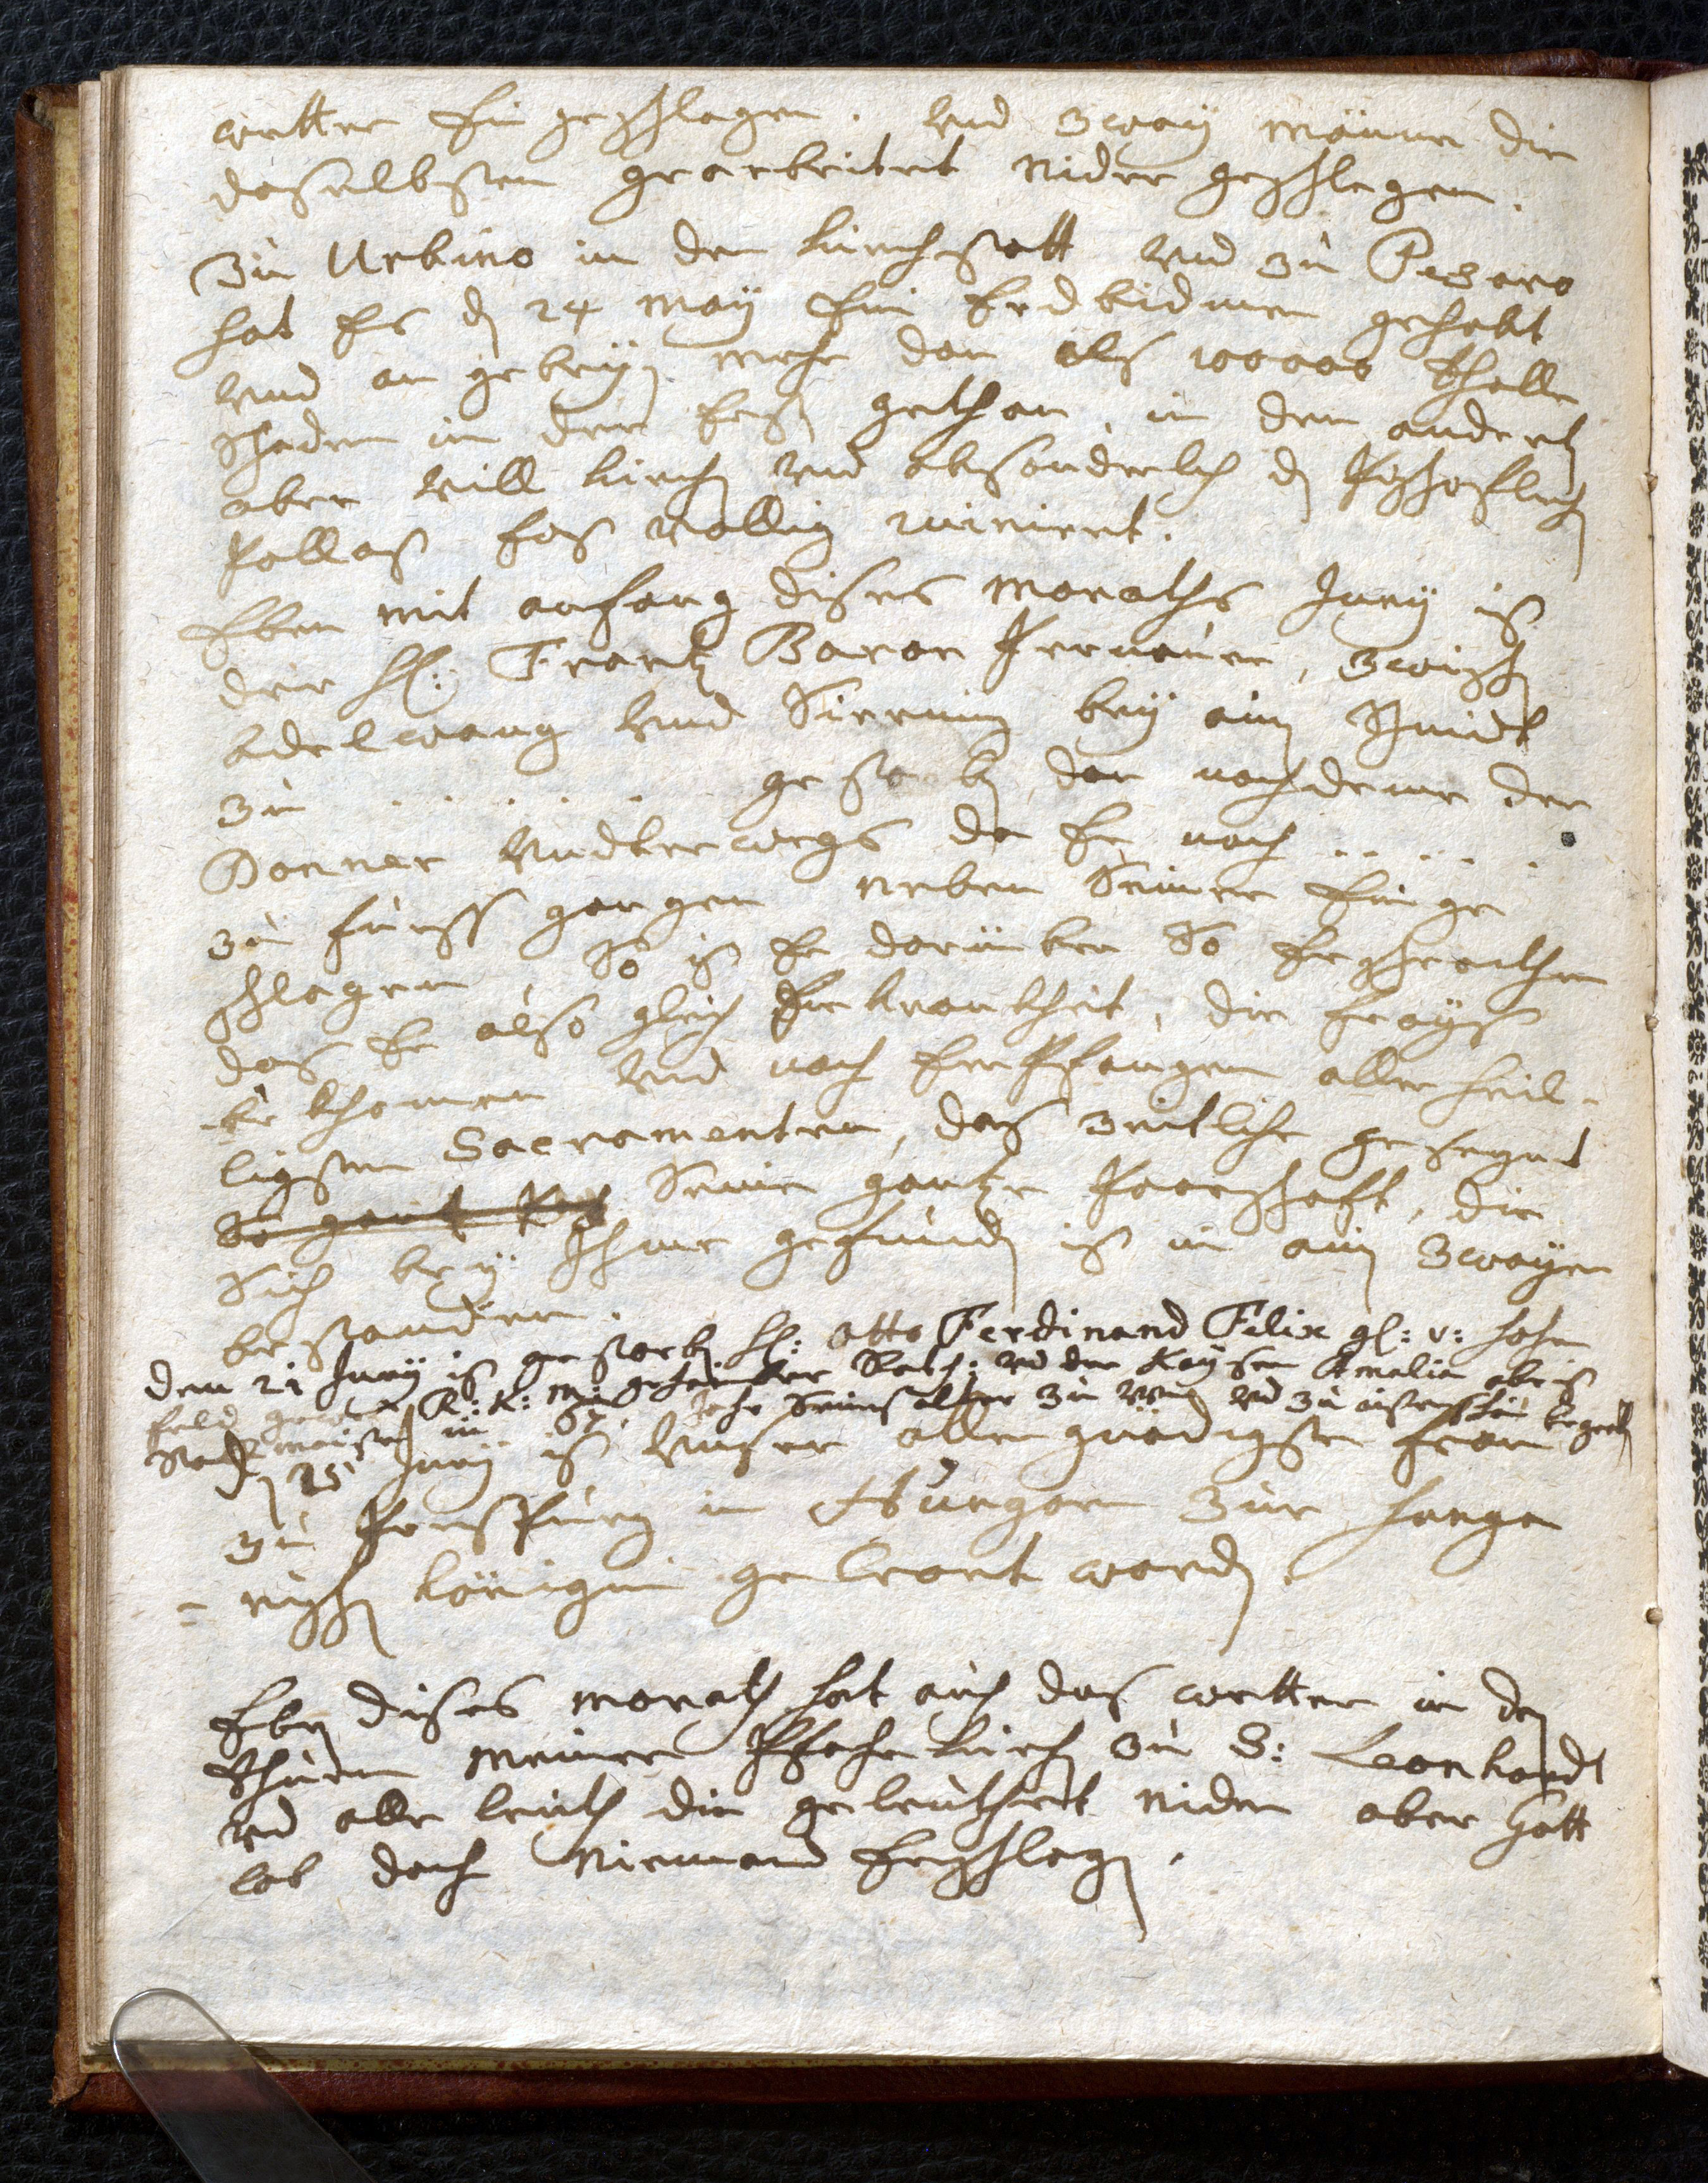 wetter Eingeschlagen. vnd zway männer die
daselbsten gearbeitet nider geschlagen.
Zu Urbino in dem kirchstatt vnd zu Pesaro
hat Es dz 24 may Ein Erdbidmen gehabt
vnd an gebeyen mehr dan als 100000 thaller
schaden in der Erst gethan, in dem anderten
aber vill kirchen vnd absonderlich dz Pischoflich
Pallast fast völlig ruiniert.
Eben mit anfang dises Monaths Juny ist
der H: Frantz Baron Pernauer, zwischen
Adelwang vnd Sierning bey ainem Schmidt
zu . . . . . gestorben, dan nachdeme der
Donner vndterwegs da Er nach . . . . .
zu fuess gangen neben Seiner Einge
schlagen, So ist Er darüber So Erschrockhen
das Er also gleich Ein kranckheit, die frayß
-bekhomen vnd nach Empfangen aller heil-
ligsten Sacramenten, das zeitliche gesegnet
Seine gantze Paarschaft, die
Sich bey Ihme gefunden ist in ain zwayer
bestanden.
den 21 Juny ist gestorben H: Otto Ferdinand Felix gf: v: Hohen
feld gewester R: K: M: geheimber Rath; vnd der Kayserin Amalia obrist
Stallmaister in 67 Jahr Seines alter zu Wien vnd zu aistershaim begraben
dz 25 Juny ist vnser aller gnädigste frau
zu Prespurg in Hungarn zur hunga
-rischen königin gekront worden.
Eben dises monath hat auch das wetter in den
thurn meiner Pfahrkirchen zu S: Leonhardt
vnd alle leuth die geleuthet nider aber Gott
lob doch Niemand Erschlagen.